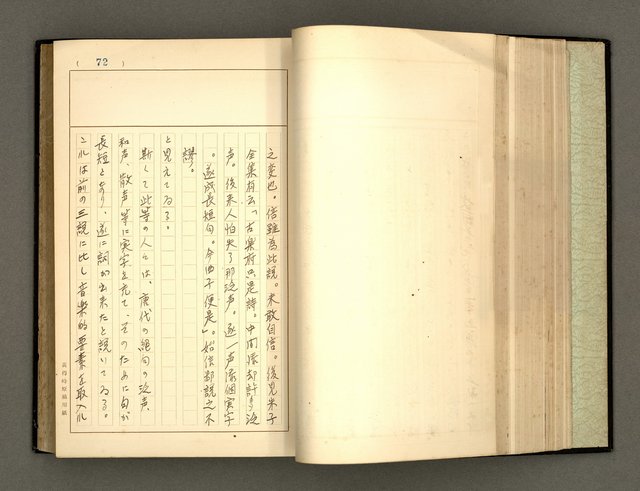 ( 72 )
之変也。信雖為此説。未敢自信。後見朱子
全集有云「古楽府只是詩。中間添却許多泛
声。後来人怕失了那泛声。逐一声添個実字
。遂成長短句。今曲子便是」。始信都説之不
謬。
と見えてゐる。
斯して此等の人々は、唐代の絶句の泛声、
和声、散声等に実字を充て、そのために句が
長短となり、遂に詞が出来たと説いてゐる。
これは前の三説に比し音楽的要素を取入れ
黄得時原稿用紙